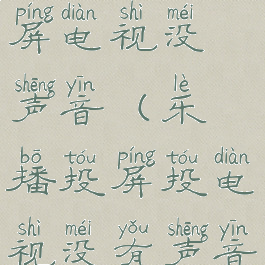 píng diàn shì méi
屏电视没
shēng yīn lè
声音（乐
bō tóu píng tóu diàn
播投屏投电
shì méi yǒu shēng yīn
视没有声音